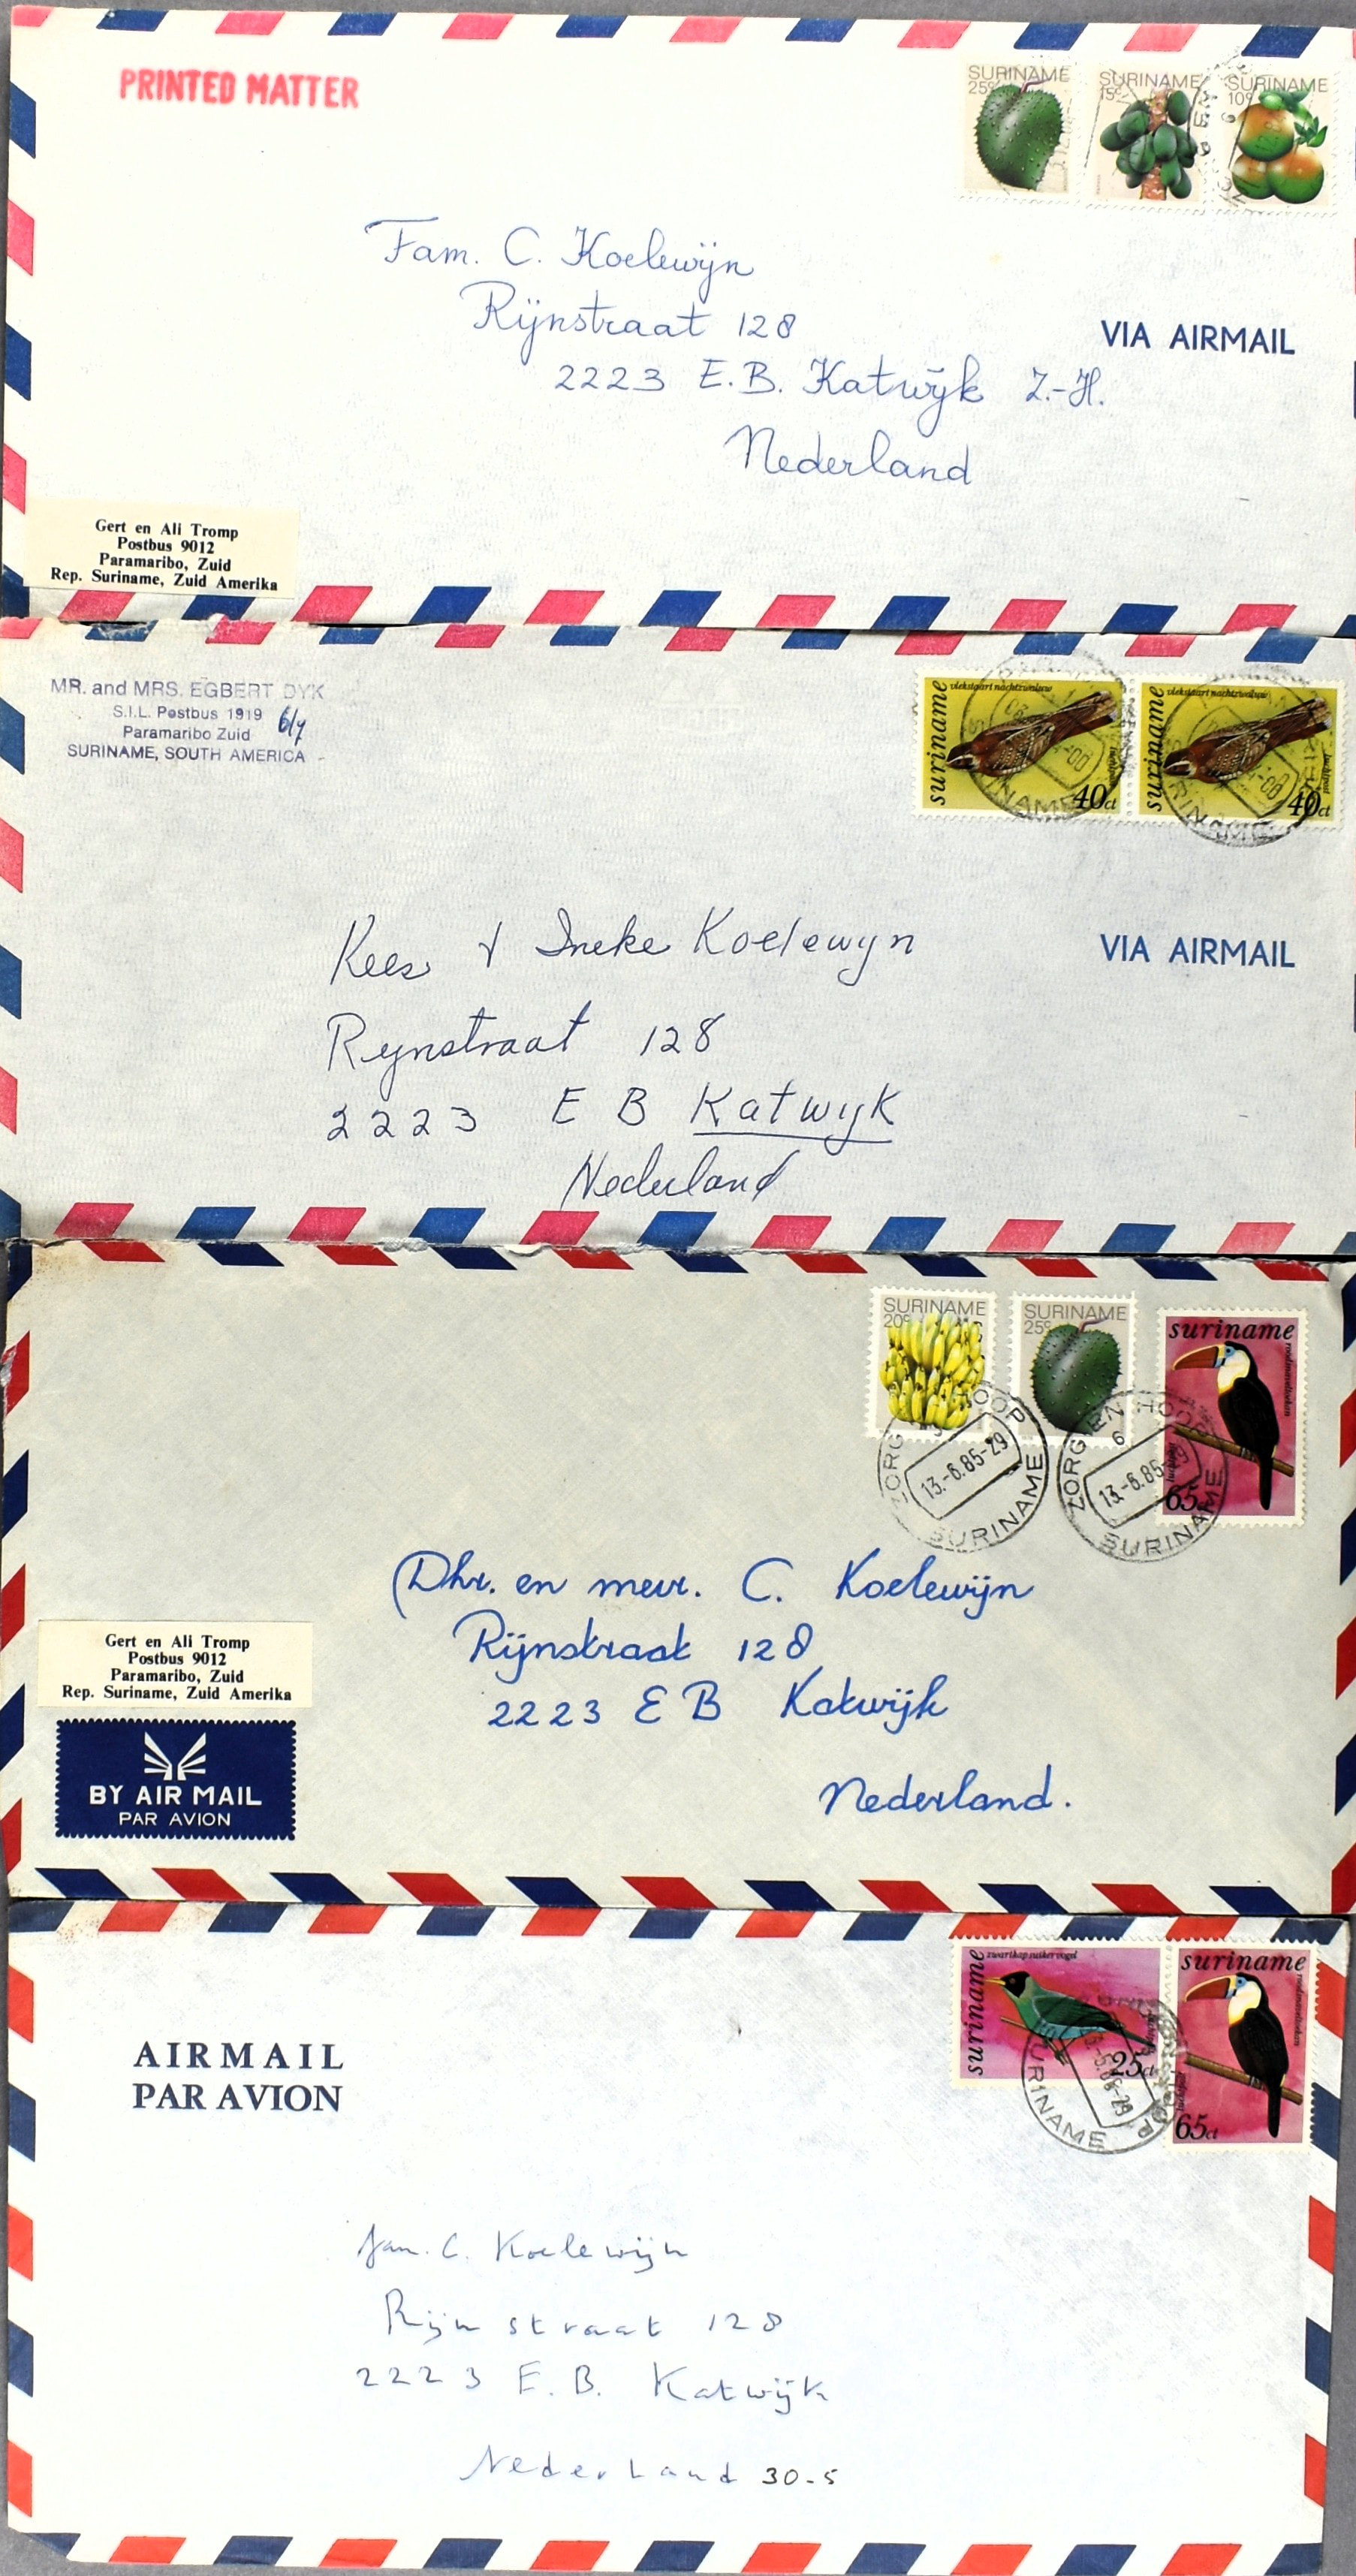 PRINTED MATTER
SURINAME
25c
SURINAME
15c
SURINAME
10c
Fam. C. Koelewijn
Rijnstraat 128
2223 E.B. Katwijk Z.-H.
Nederland
VIA AIRMAIL
Gert en Ali Tromp
Postbus 9012
Paramaribo, Zuid
Rep. Suriname, Zuid Amerika
MR. and MRS. EGBERT DYK
S.I.L. Postbus 1919
Paramaribo Zuid
SURINAME, SOUTH AMERICA
suriname
vlekstaart nachtzwaluw
luchtpost
40ct
suriname
vlekstaart nachtzwaluw
luchtpost
40ct
Kees & Ineke Koelewyn
Rynstraat 128
2223 E B Katwyk
Nederland
VIA AIRMAIL
SURINAME
20c
SURINAME
25c
suriname
luchtpost
65ct
ZORG EN HOOP
13.-6.85-29
SURINAME
ZORG EN HOOP
6
13.-6.85-29
SURINAME
Dhr. en mevr. C. Koelewijn
Rijnstraat 128
2223 EB Katwijk
Nederland.
Gert en Ali Tromp
Postbus 9012
Paramaribo, Zuid
Rep. Suriname, Zuid Amerika
BY AIR MAIL
PAR AVION
suriname
zwartkap suikervogel
25ct
suriname
luchtpost
65ct
SURINAME
AIRMAIL
PAR AVION
Fam. C. Koelewijn
Rijnstraat 128
2223 E.B. Katwijk
Nederland 30-5